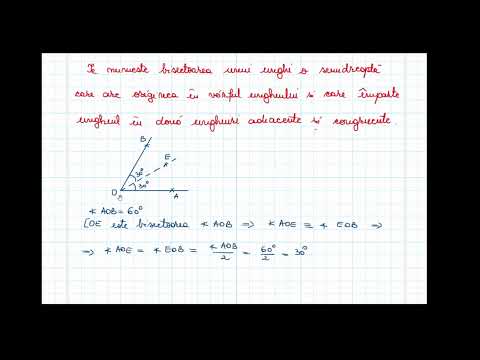 Se numește bisectoarea unui unghi o semidreaptă
care are originea în vârful unghiului și care împarte
unghiul în două unghiuri adiacente și congruente.
B
E
30°
30°
O
A
∢ AOB = 60°
[OE este bisectoarea ∢ AOB ⇒ ∢ AOE ≡ ∢ EOB ⇒
⇒ ∢ AOE = ∢ EOB = ∢ AOB / 2 = 60° / 2 = 30°